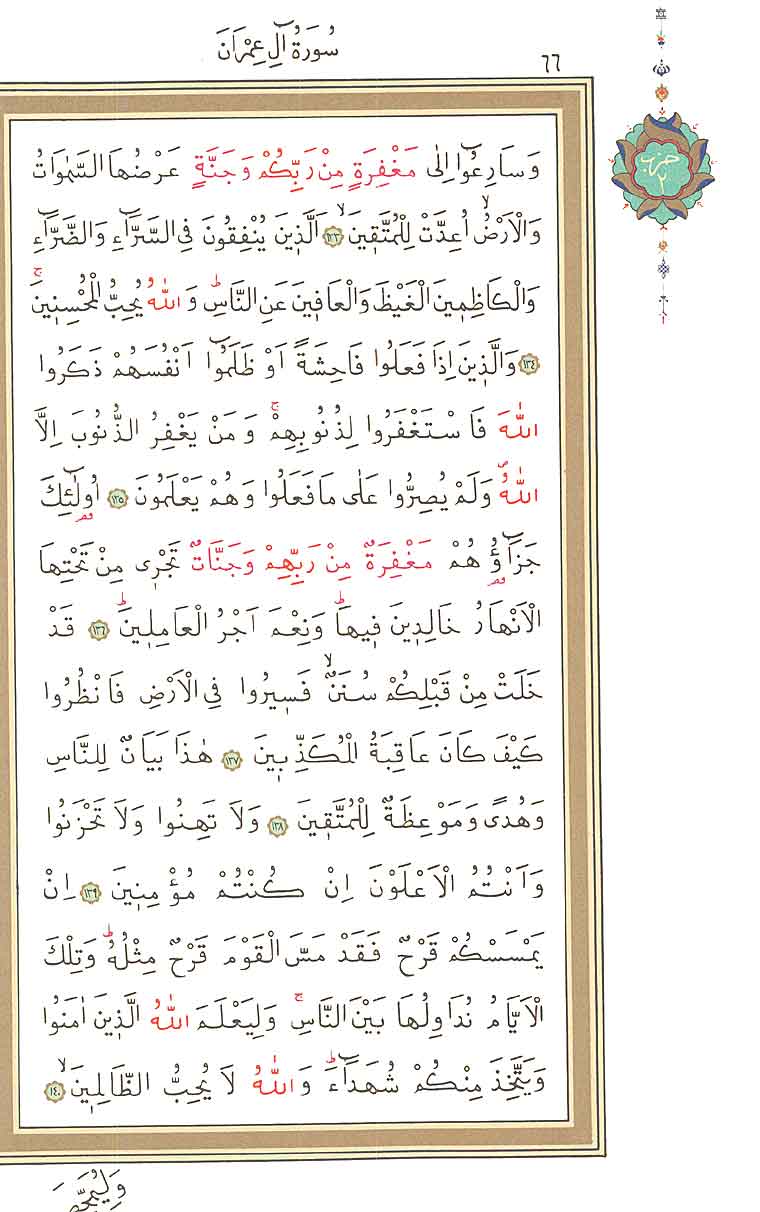 سُورَةُ اٰلِ عِمْرَانَ
٦٦
وَسَارِعُٓوا اِلٰى مَغْفِرَةٍ مِنْ رَبِّكُمْ وَجَنَّةٍ عَرْضُهَا السَّمٰوَاتُ
حزب ٢
وَالْاَرْضُۙ اُعِدَّتْ لِلْمُتَّقٖينَۙ ﴿١٣٣﴾ اَلَّذٖينَ يُنْفِقُونَ فِى السَّرَّٓاءِ وَالضَّرَّٓاءِ
وَالْكَاظِمٖينَ الْغَيْظَ وَالْعَافٖينَ عَنِ النَّاسِؕ وَاللّٰهُ يُحِبُّ الْمُحْسِنٖينَۚ
﴿١٣٤﴾ وَالَّذٖينَ اِذَا فَعَلُوا فَاحِشَةً اَوْ ظَلَمُٓوا اَنْفُسَهُمْ ذَكَرُوا
اللّٰهَ فَاسْتَغْفَرُوا لِذُنُوبِهِمْۚ وَمَنْ يَغْفِرُ الذُّنُوبَ اِلَّا
اللّٰهُ وَلَمْ يُصِرُّوا عَلٰى مَا فَعَلُوا وَهُمْ يَعْلَمُونَ ﴿١٣٥﴾ اُولٰٓئِكَ
جَزَٓاؤُهُمْ مَغْفِرَةٌ مِنْ رَبِّهِمْ وَجَنَّاتٌ تَجْرٖى مِنْ تَحْتِهَا
الْاَنْهَارُ خَالِدٖينَ فٖيهَاؕ وَنِعْمَ اَجْرُ الْعَامِلٖينَؕ ﴿١٣٦﴾ قَدْ
خَلَتْ مِنْ قَبْلِكُمْ سُنَنٌۙ فَسٖيرُوا فِى الْاَرْضِ فَانْظُرُوا
كَيْفَ كَانَ عَاقِبَةُ الْمُكَذِّبٖينَ ﴿١٣٧﴾ هٰذَا بَيَانٌ لِلنَّاسِ
وَهُدًى وَمَوْعِظَةٌ لِلْمُتَّقٖينَ ﴿١٣٨﴾ وَلَا تَهِنُوا وَلَا تَحْزَنُوا
وَاَنْتُمُ الْاَعْلَوْنَ اِنْ كُنْتُمْ مُؤْمِنٖينَ ﴿١٣٩﴾ اِنْ
يَمْسَسْكُمْ قَرْحٌ فَقَدْ مَسَّ الْقَوْمَ قَرْحٌ مِثْلُهُؕ وَتِلْكَ
الْاَيَّامُ نُدَاوِلُهَا بَيْنَ النَّاسِۚ وَلِيَعْلَمَ اللّٰهُ الَّذٖينَ اٰمَنُوا
وَيَتَّخِذَ مِنْكُمْ شُهَدَٓاءَؕ وَاللّٰهُ لَا يُحِبُّ الظَّالِمٖينَۙ ﴿١٤٠﴾
وَلِيُمَحِّصَ